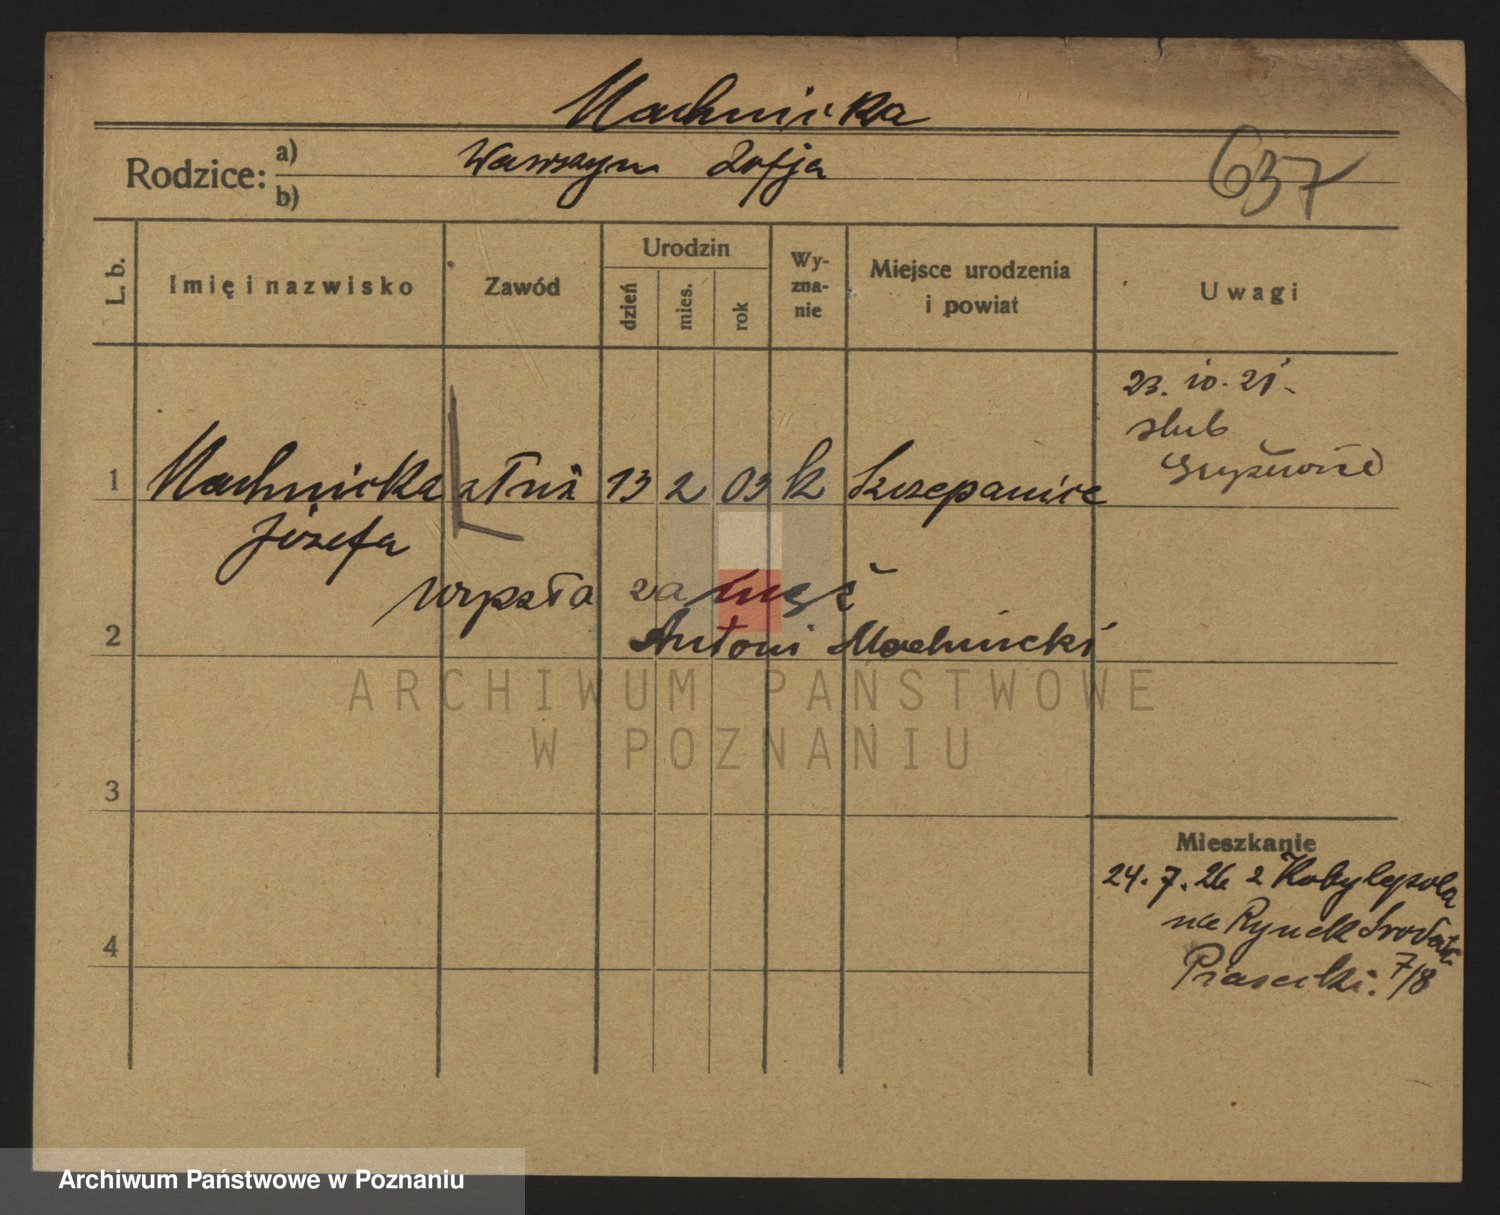 Machnicka
Rodzice: a) Wawrzyn Zofja
b)
637
L. b.
Imię i nazwisko
Zawód
Urodzin
dzień
mies.
rok
Wy-
zna-
nie
Miejsce urodzenia
i powiat
Uwagi
23. 10. 21
slub
1 Machnicka 13 2 03 k Szczepanice
Józefa
wyszła za mąż
2 Antoni Machnicki
ARCHIWUM PAŃSTWOWE
W POZNANIU
3
Mieszkanie
24. 7. 26 z Kobylepola
na Rynek
4
7/8
Archiwum Państwowe w Poznaniu